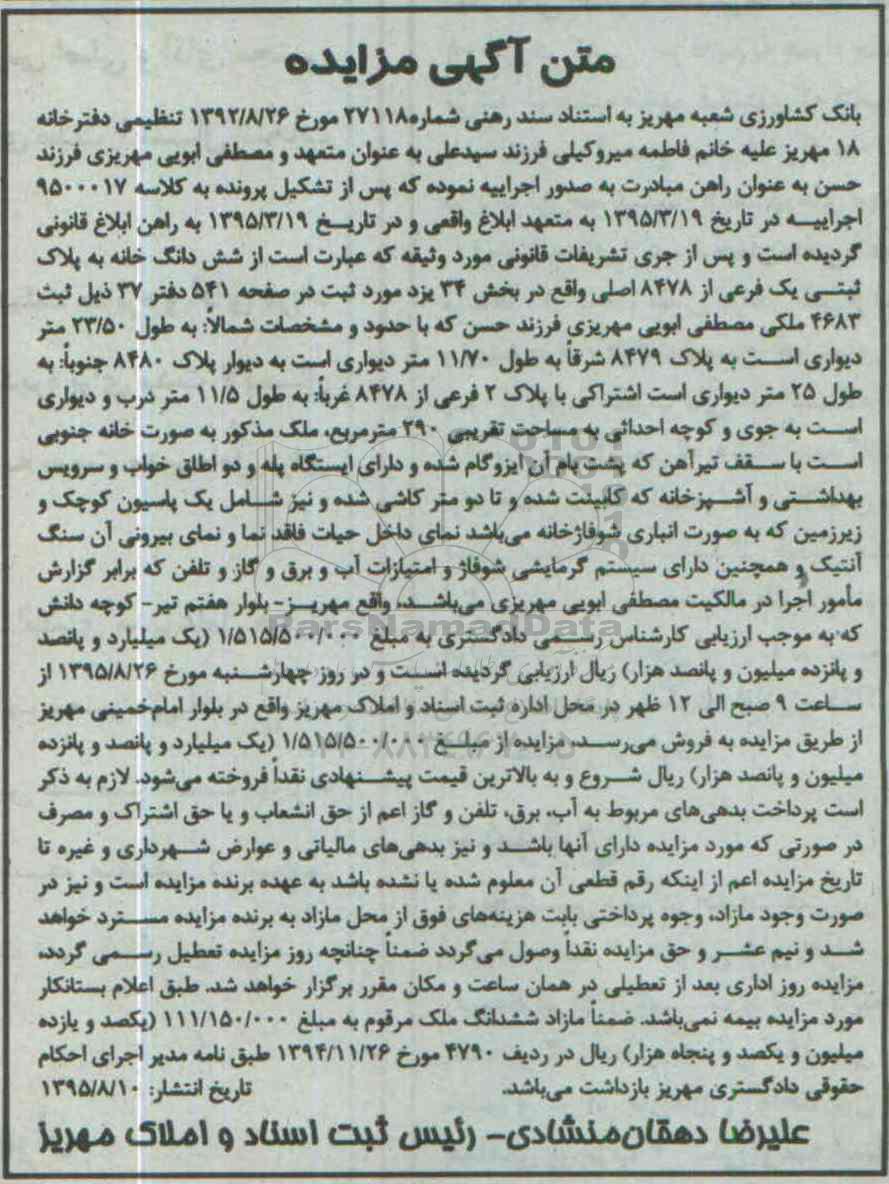 متن آگهی مزایده
بانک کشاورزی شعبه مهریز به استناد سند رهنی شماره۲۷۱۱۸ مورخ ۱۳۹۲/۸/۲۶ تنظیمی دفترخانه
۱۸ مهریز علیه خانم فاطمه میروکیلی فرزند سیدعلی به عنوان متعهد و مصطفی ابویی مهریزی فرزند
حسن به عنوان راهن مبادرت به صدور اجراییه نموده که پس از تشکیل پرونده به کلاسه ۹۵۰۰۰۱۷
اجراییه در تاریخ ۱۳۹۵/۳/۱۹ به متعهد ابلاغ واقعی و در تاریخ ۱۳۹۵/۳/۱۹ به راهن ابلاغ قانونی
گردیده است و پس از جری تشریفات قانونی مورد وثیقه که عبارت است از شش دانگ خانه به پلاک
ثبتی یک فرعی از ۸۴۷۸ اصلی واقع در بخش ۳۴ یزد مورد ثبت در صفحه ۵۴۱ دفتر ۳۷ ذیل ثبت
۴۶۸۳ ملکی مصطفی ابویی مهریزی فرزند حسن که با حدود و مشخصات شمالاً: به طول ۲۳/۵۰ متر
دیواری است به پلاک ۸۴۷۹ شرقاً به طول ۱۱/۷۰ متر دیواری است به دیوار پلاک ۸۴۸۰ جنوباً: به
طول ۲۵ متر دیواری است اشتراکی با پلاک ۲ فرعی از ۸۴۷۸ غرباً: به طول ۱۱/۵ متر درب و دیواری
است به جوی و کوچه احداثی به مساحت تقریبی ۲۹۰ مترمربع، ملک مذکور به صورت خانه جنوبی
است با سقف تیرآهن که پشت بام آن ایزوگام شده و دارای ایستگاه پله و دو اطاق خواب و سرویس
بهداشتی و آشپزخانه که کابینت شده و تا دو متر کاشی شده و نیز شامل یک پاسیون کوچک و
زیرزمین که به صورت انباری شوفاژخانه می‌باشد نمای داخل حیات فاقد نما و نمای بیرونی آن سنگ
آنتیک و همچنین دارای سیستم گرمایشی شوفاژ و امتیازات آب و برق و گاز و تلفن که برابر گزارش
مأمور اجرا در مالکیت مصطفی ابویی مهریزی می‌باشد، واقع مهریز- بلوار هفتم تیر- کوچه دانش
که به موجب ارزیابی کارشناس رسمی دادگستری به مبلغ ۱/۵۱۵/۵۰۰/۰۰۰ (یک میلیارد و پانصد
و پانزده میلیون و پانصد هزار) ریال ارزیابی گردیده است و در روز چهارشنبه مورخ ۱۳۹۵/۸/۲۶ از
ساعت ۹ صبح الی ۱۲ ظهر در محل اداره ثبت اسناد و املاک مهریز واقع در بلوار امام‌خمینی مهریز
از طریق مزایده به فروش می‌رسد، مزایده از مبلغ ۱/۵۱۵/۵۰۰/۰۰۰ (یک میلیارد و پانصد و پانزده
میلیون و پانصد هزار) ریال شروع و به بالاترین قیمت پیشنهادی نقداً فروخته می‌شود. لازم به ذکر
است پرداخت بدهی‌های مربوط به آب، برق، تلفن و گاز اعم از حق انشعاب و یا حق اشتراک و مصرف
در صورتی که مورد مزایده دارای آنها باشد و نیز بدهی‌های مالیاتی و عوارض شهرداری و غیره تا
تاریخ مزایده اعم از اینکه رقم قطعی آن معلوم شده یا نشده باشد به عهده برنده مزایده است و نیز در
صورت وجود مازاد، وجوه پرداختی بابت هزینه‌های فوق از محل مازاد به برنده مزایده مسترد خواهد
شد و نیم عشر و حق مزایده نقداً وصول می‌گردد ضمناً چنانچه روز مزایده تعطیل رسمی گردد،
مزایده روز اداری بعد از تعطیلی در همان ساعت و مکان مقرر برگزار خواهد شد. طبق اعلام بستانکار
مورد مزایده بیمه نمی‌باشد. ضمناً مازاد ششدانگ ملک مرقوم به مبلغ ۱۱۱/۱۵۰/۰۰۰ (یکصد و یازده
میلیون و یکصد و پنجاه هزار) ریال در ردیف ۴۷۹۰ مورخ ۱۳۹۴/۱۱/۲۶ طبق نامه مدیر اجرای احکام
حقوقی دادگستری مهریز بازداشت می‌باشد. تاریخ انتشار: ۱۳۹۵/۸/۱۰
علیرضا دهقان‌منشادی- رئیس ثبت اسناد و املاک مهریز
ParsNamadData